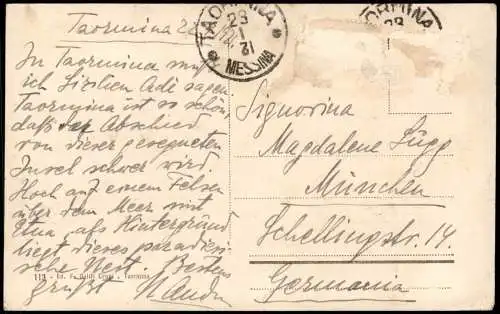 Taormina 22
In Taormina muß
ich Sizilien Adé sagen.
Taormina ist so schön,
daß der Abschied
von dieser gesegneten
Insel schwer wird.
Hoch auf einem Felsen
über dem Meer mit
Etna als Hintergrund
liegt dieses paradiesi-
sche Nest. Bestens
grüßt
Ed.
Taormina
TAORMINA
23
1
31
MESSINA
TAORMINA
23
Signorina
Magdalene Lügg
München
Schellingstr. 14.
Germania